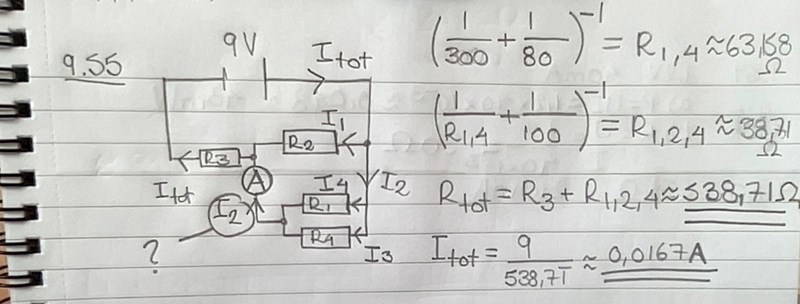 9.55
9V
Itot
I1
R2
R3
A
Itot
I2
I4
R1
I2
R4
I3
?
(1/300 + 1/80)^-1 = R1,4 ≈ 63,158 Ω
(1/R1,4 + 1/100)^-1 = R1,2,4 ≈ 38,71 Ω
Rtot = R3 + R1,2,4 ≈ 538,71Ω
Itot = 9/538,71 ≈ 0,0167A